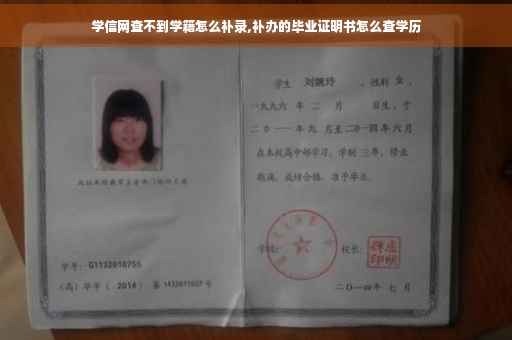 学信网查不到学籍怎么补录,补办的毕业证明书怎么查学历
学生 刘婉玲 ，性别 女 ，
一九九六 年 二 月 日生，于
二〇一一 年 九 月至 二〇一四 年 六 月
在本校高中部学习，学制 三 年，修业
期满，成绩合格，准予毕业。
学号：G1132010755
学校：
校长：
（高）毕字（ 2014 ）第 1432011027 号
二〇一四年 七 月